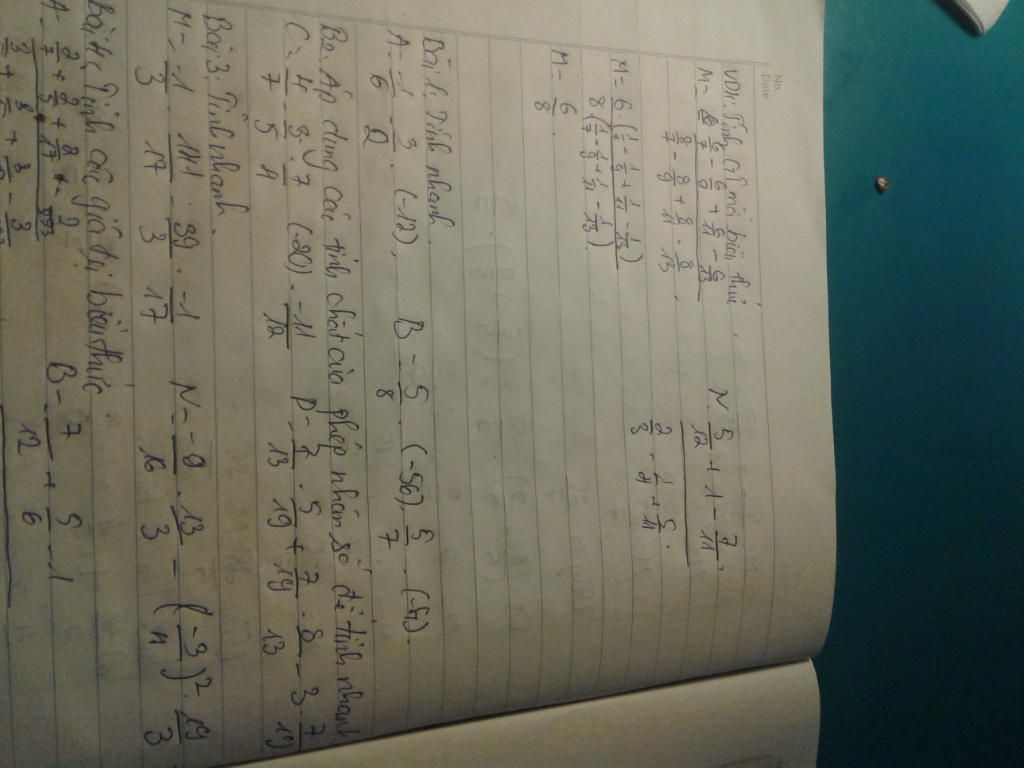 No.
Date
VD4: Tính GT mỗi biểu thức.
M = 6/7 - 6/9 + 6/11 - 6/13 / 8/7 - 8/9 + 8/11 - 8/13, N = 5/12 + 1 - 7/11 / 2/3 - 1/4 + 5/11.
M = 6.(1/7 - 1/9 + 1/11 - 1/13) / 8(1/7 - 1/9 + 1/11 - 1/13)
M = 6/8.
Bài 1. Tính nhanh.
A = -1/6 . 3/2 . (-12), B = 5/8 . (-56). 5/7 .
B2. Áp dụng các tính chất của phép nhân số để tính nhanh
C = 4/7 . 3/5 . 7/4 (-20). -11/12 P = 7/13 . 5/19 + 7/19 . 8/13 - 3 7/19
Bài 3. Tính nhanh.
M = -1/3 . 141/17 - 39/3 . -1/17 N = -9/16 . 13/3 - (-3/4)² . 19/3
Bài 4: Tính các giá trị biểu thức.
B = 7/12 + 5/6 - 1